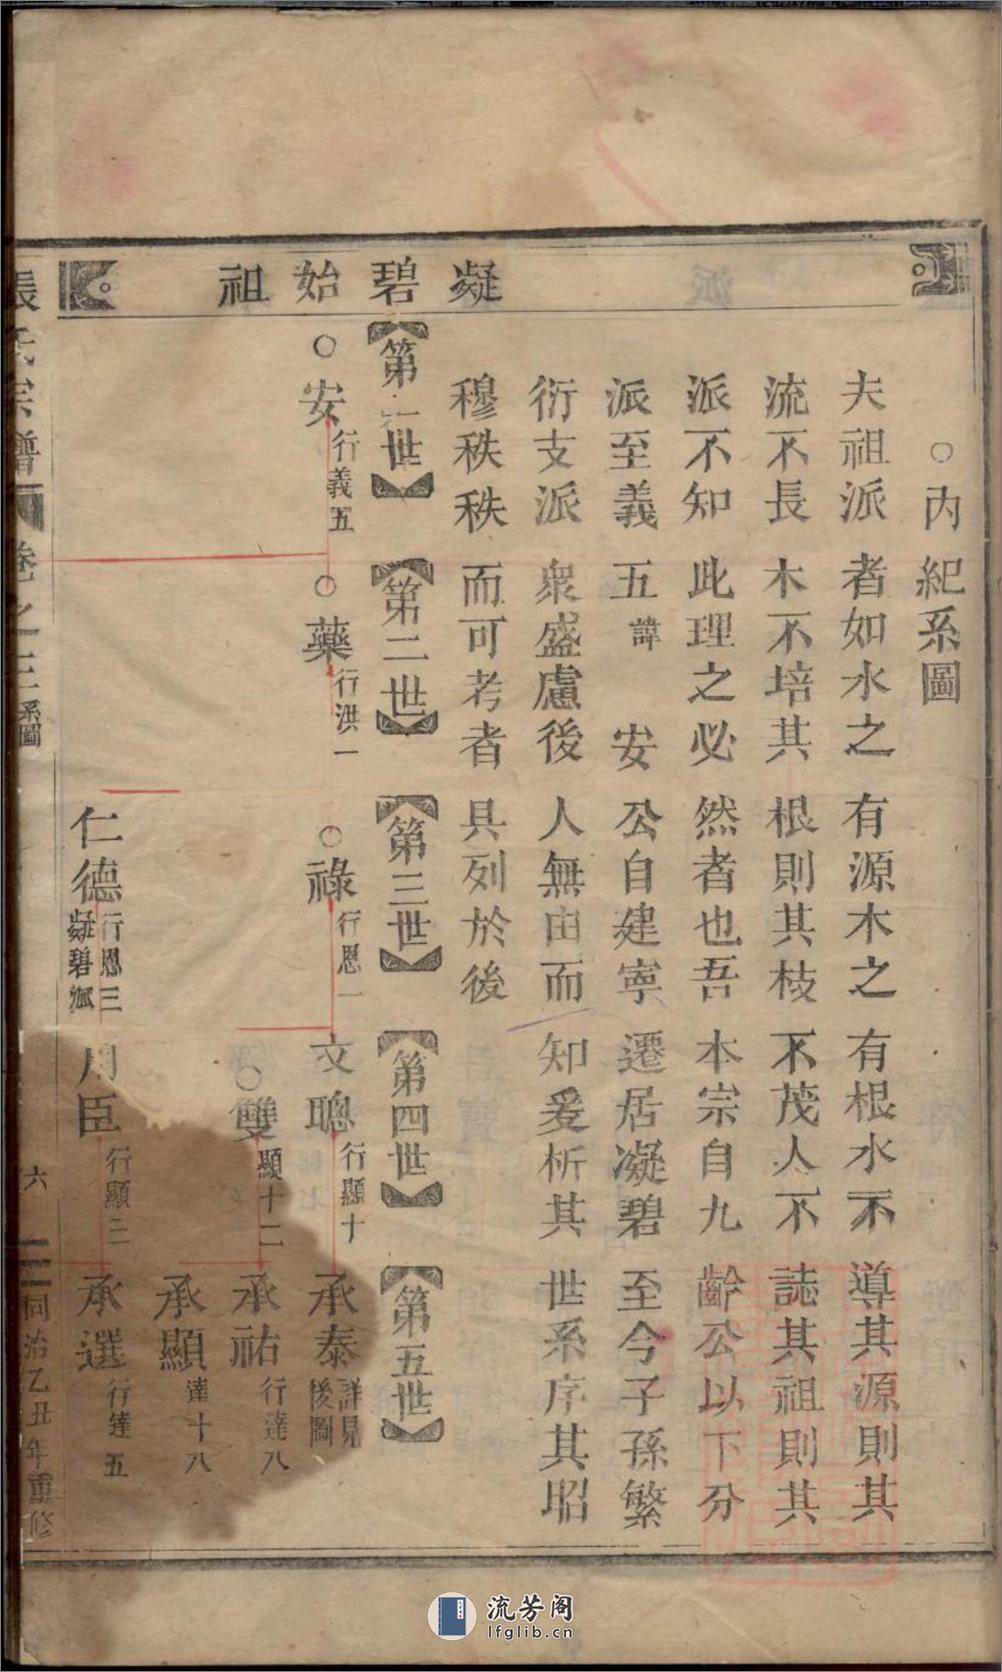 凝碧始祖
○內紀系圖
夫祖派者如水之有源木之有根水不導其源則其
流不長木不培其根則其枝不茂人不誌其祖則其
派不知此理之必然者也吾本宗自九齡公以下分
派至義五諱安公自建寧遷居凝碧至今子孫繁
衍支派衆盛慮後人無由而知爰析其世系序其昭
穆秩秩而可考者具列於後
第一世
第二世
第三世
第四世
第五世
○安行義五
○藥行洪一
○祿行恩一
文聰行顯十
承泰詳見後圖
○雙顯十二
承祐行達八
承顯達十八
仁德行恩三凝碧派
周臣行顯三
承選行達五
張氏宗譜
卷之三系圖
六
同治乙丑年重修
流芳阁
lfglib.cn